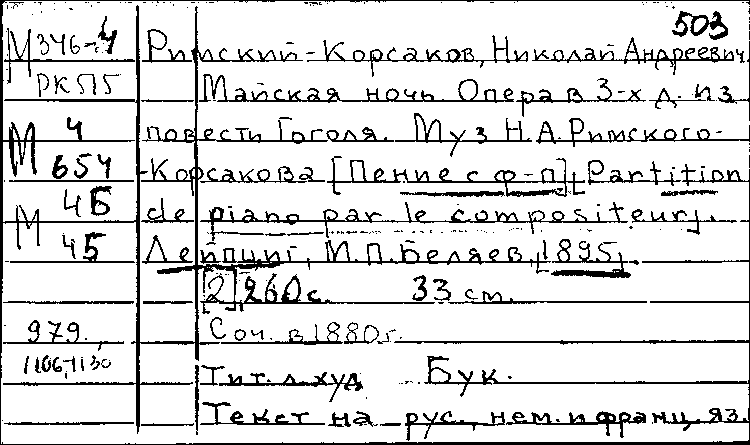 503
М 346-4 Римский-Корсаков, Николай Андреевич
РК 5П5 Майская ночь. Опера в 3-х д. из
М 4 повести Гоголя. Муз Н.А. Римского-
654 -Корсакова [Пение с ф-п] [Partition
М 4Б de piano par le compositeur].
45 Лейпциг, М.П. Беляев, [1895].
[2], 260 с. 33 см.
979., Соч. в 1880 г.
1106,1130
Тит. л. худ Бук.
Текст на рус., нем. и франц. яз.